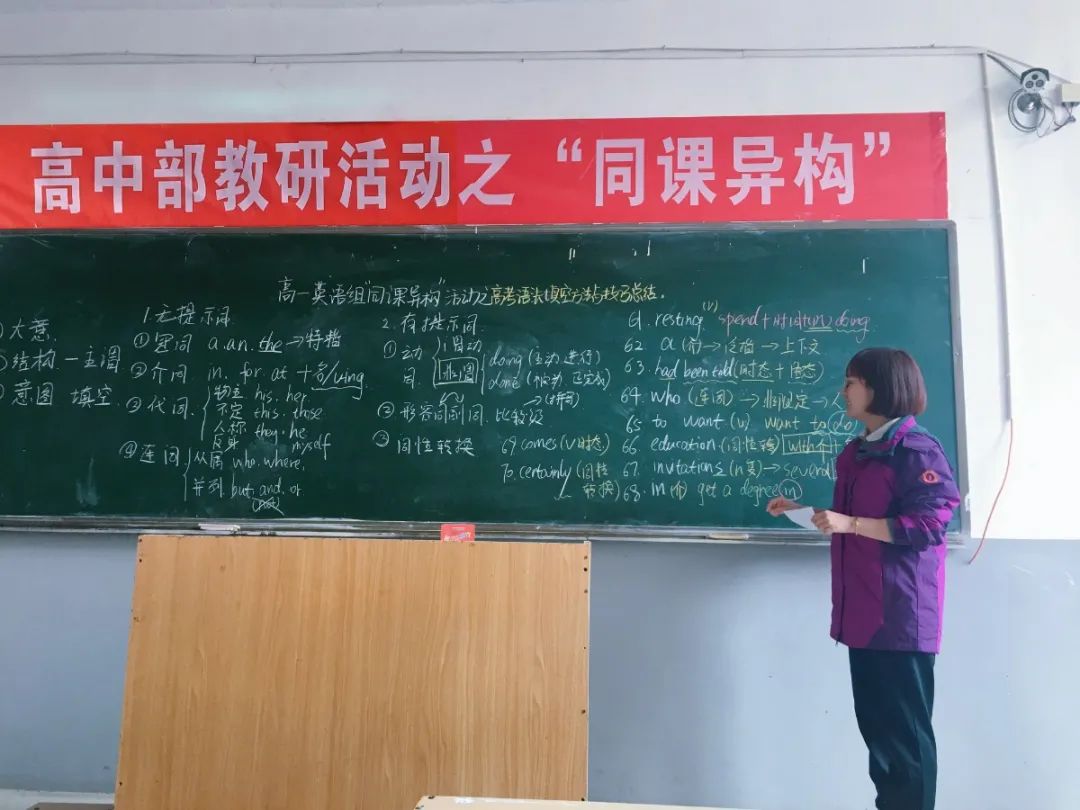 高中部教研活动之“同课异构”
高一英语组"同课异构"活动之高考语法填空方法与技巧总结.
大意.
结构 — 主谓
意图 填空
1.无提示词.
①冠词 a.an.the→特指
②介词 in. for. at +名/ving
③代词
物主 his. her
不定 this. those
人称 they. he
反身 myself
④连词
从属 who. where,
并列 but. and. or
2. 有提示词.
①动词
谓动
非谓
doing (主动 进行)
done (被动 已完成)
②形容词副词 比较级
③词性转换
61. resting. (v) spend+时间(in) doing
62. a (冠)→泛指→上下文
63. had been told (时态+语态)
64. who (连词)→非限定→人
65. to want (v) want to do
66. education (词性转) with
67. invitations (n复)→several
68. in (介) get a degree in
69 comes (v时态)
70. certainly (词性转换)